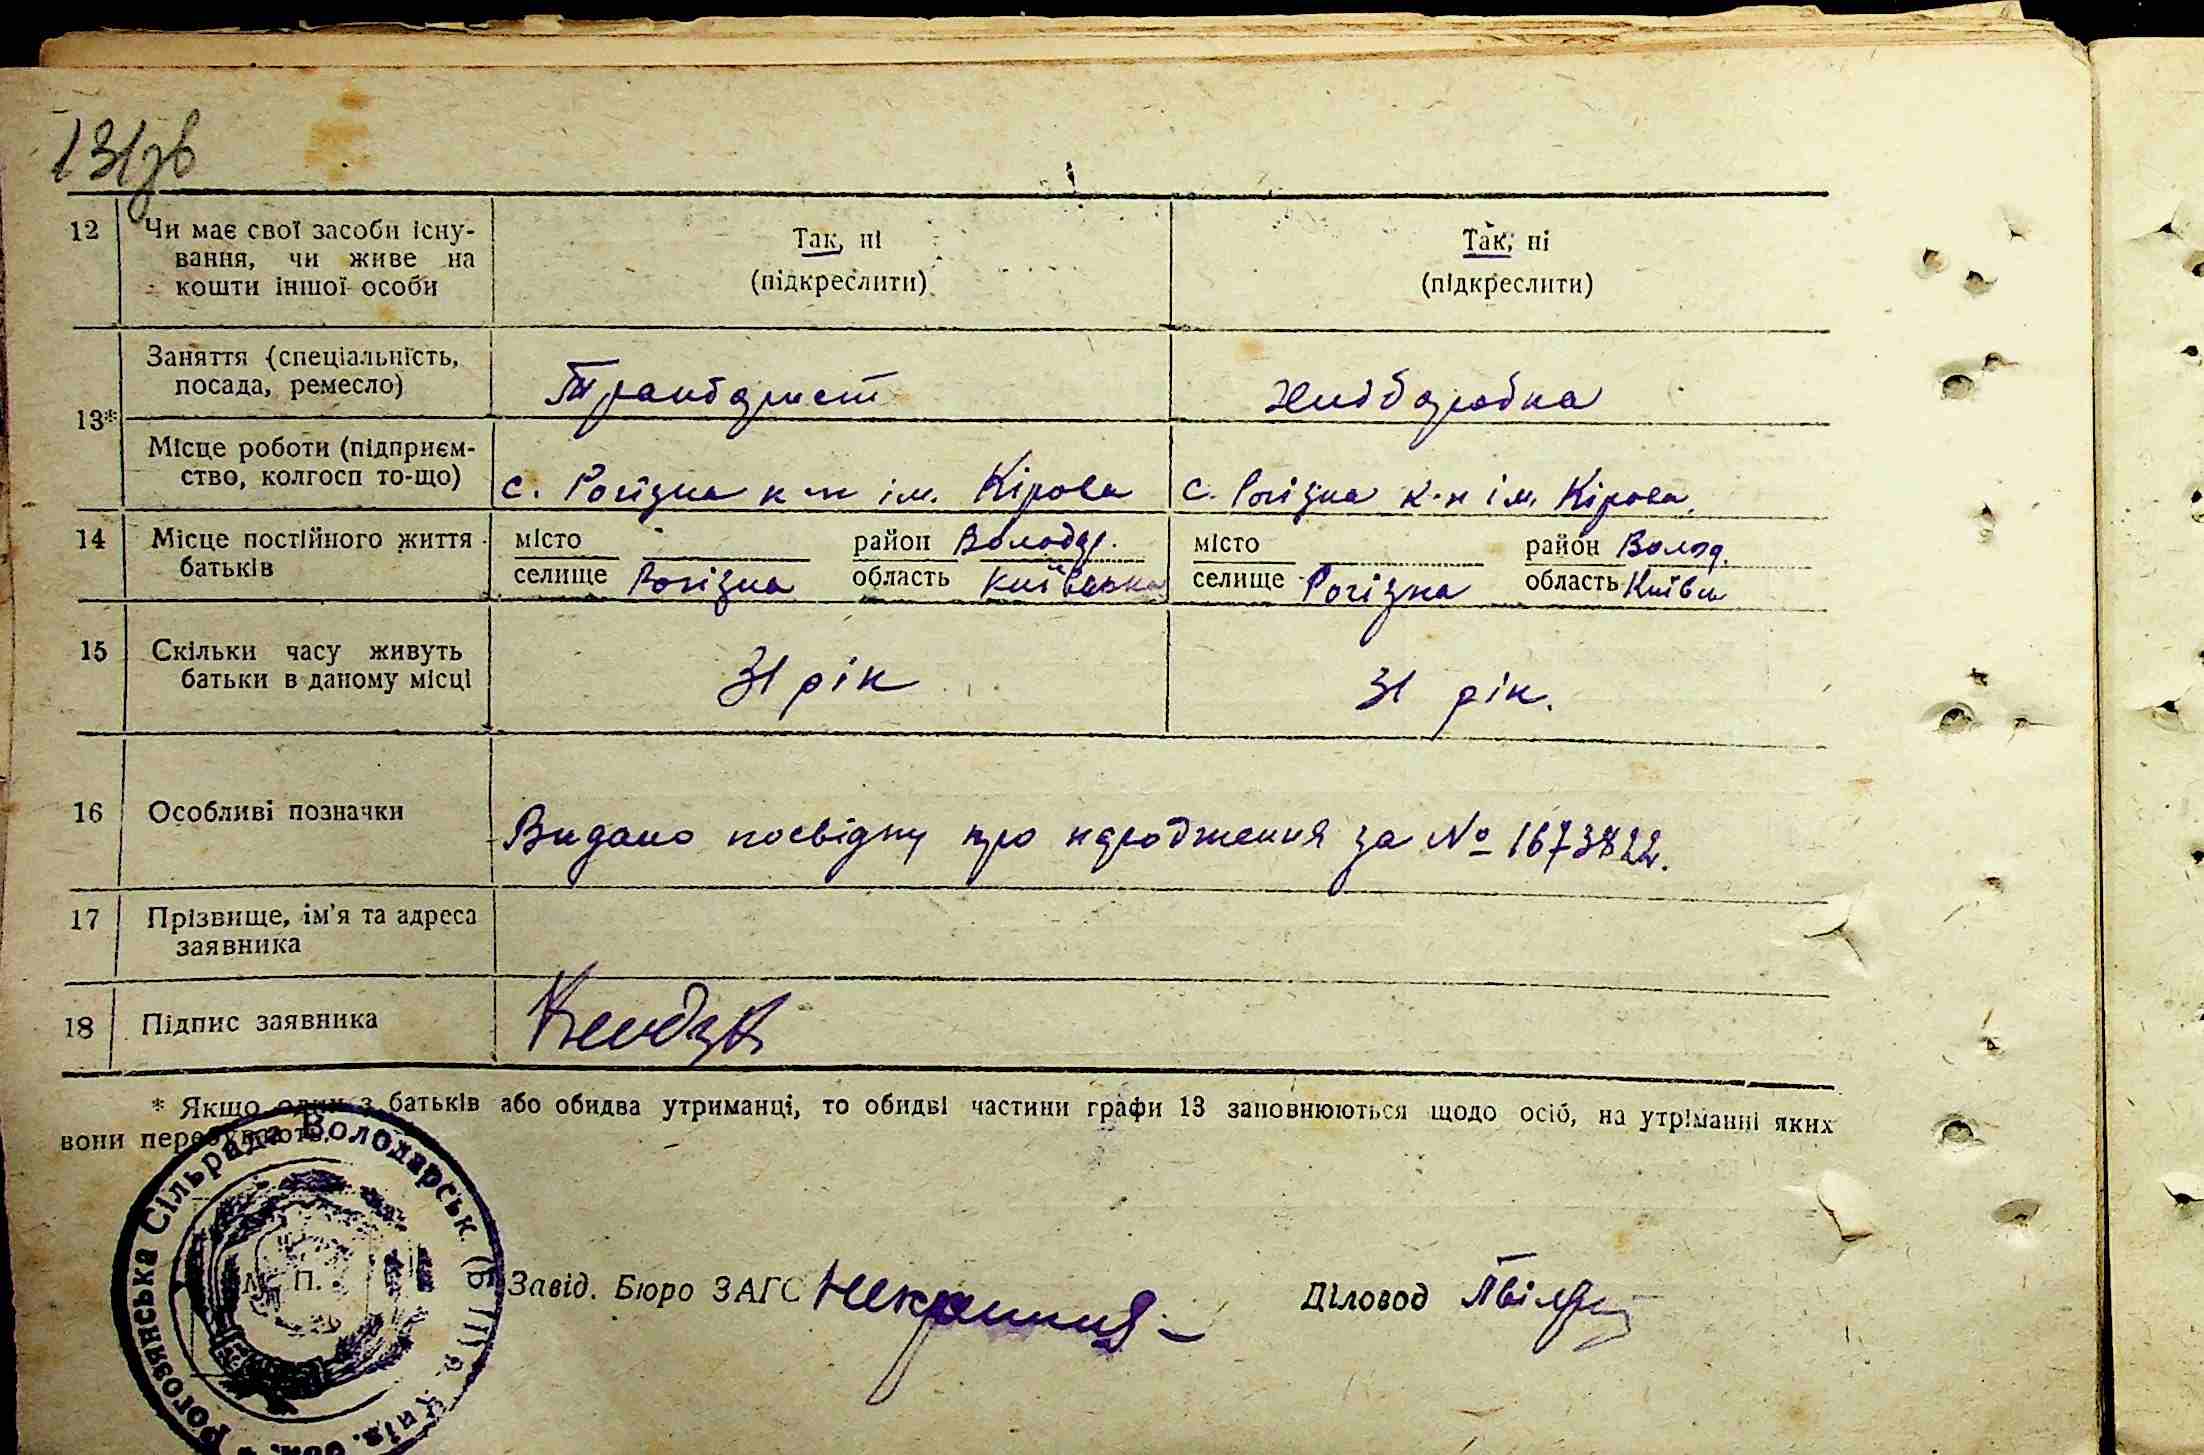 131зв
12 Чи має свої засоби існу-
вання, чи живе на
кошти іншої особи
Так, ні
(підкреслити)
Так, ні
(підкреслити)
13*
Заняття (спеціальність,
посада, ремесло)
хліборобка
Місце роботи (підприєм-
ство, колгосп то-що)
с. Рогізна к-п ім. Кірова
с. Рогізна к-п ім. Кірова.
14 Місце постійного життя
батьків
місто район Володар.
селище Рогізна область Київська
місто район Волод.
селище Рогізна область Київсь
15 Скільки часу живуть
батьки в даному місці
31 рік
31 рік.
16 Особливі позначки
Видано посвідку про народження за № 1673822.
17 Прізвище, ім'я та адреса
заявника
18 Підпис заявника
* Якщо один з батьків або обидва утриманці, то обидві частини графи 13 заповнюються щодо осіб, на утріманні яких
вони перебувають.
Рогозянська Сільрада Володарськ.
М. П.
Завід. Бюро ЗАГС
Діловод